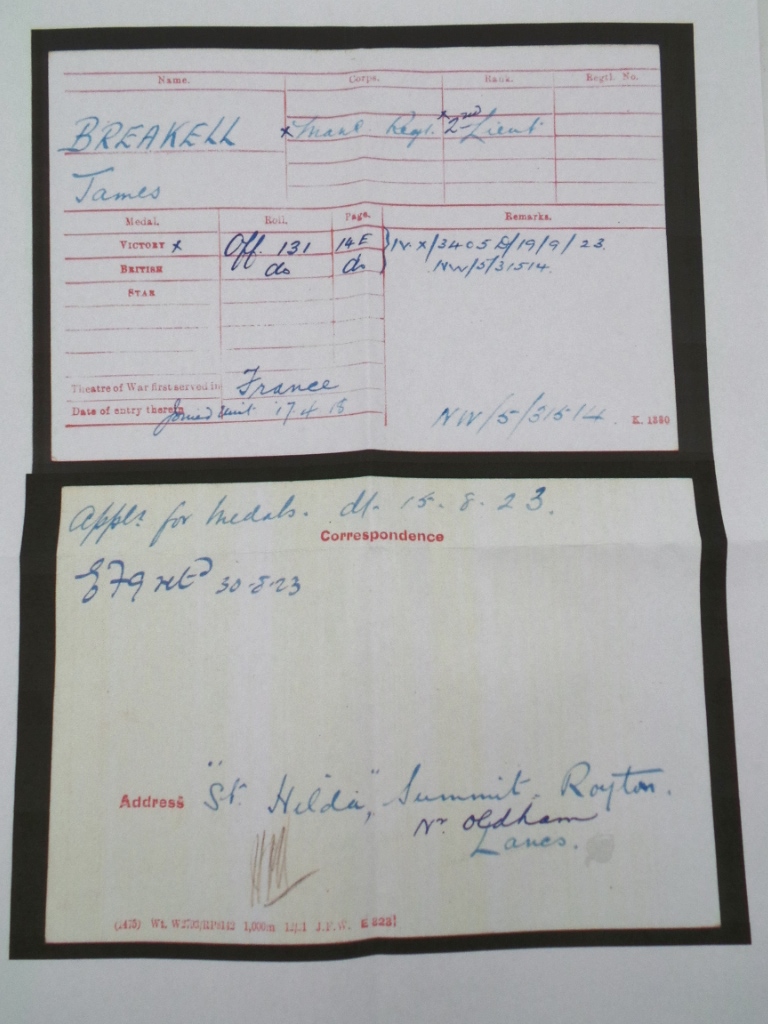 Name. Corps. Rank. Regtl. No.
BREAKELL x Manc. Regt. x 2nd Lieut
James
Medal. Roll. Page. Remarks.
VICTORY x Off. 131 14E } NX/3405D/19/9/23.
BRITISH do do NW/5/31514.
STAR
Theatre of War first served in France
Date of entry therein Joined Unit 17 4 18
NW/5/31514. K. 1380
Appln. for Medals. dt. 15. 8. 23.
Correspondence
E79 retd 30-8-23
Address "St. Hilda", Summit. Royton.
Nr. Oldham
Lancs.
1,000m J.F.W. E 3231